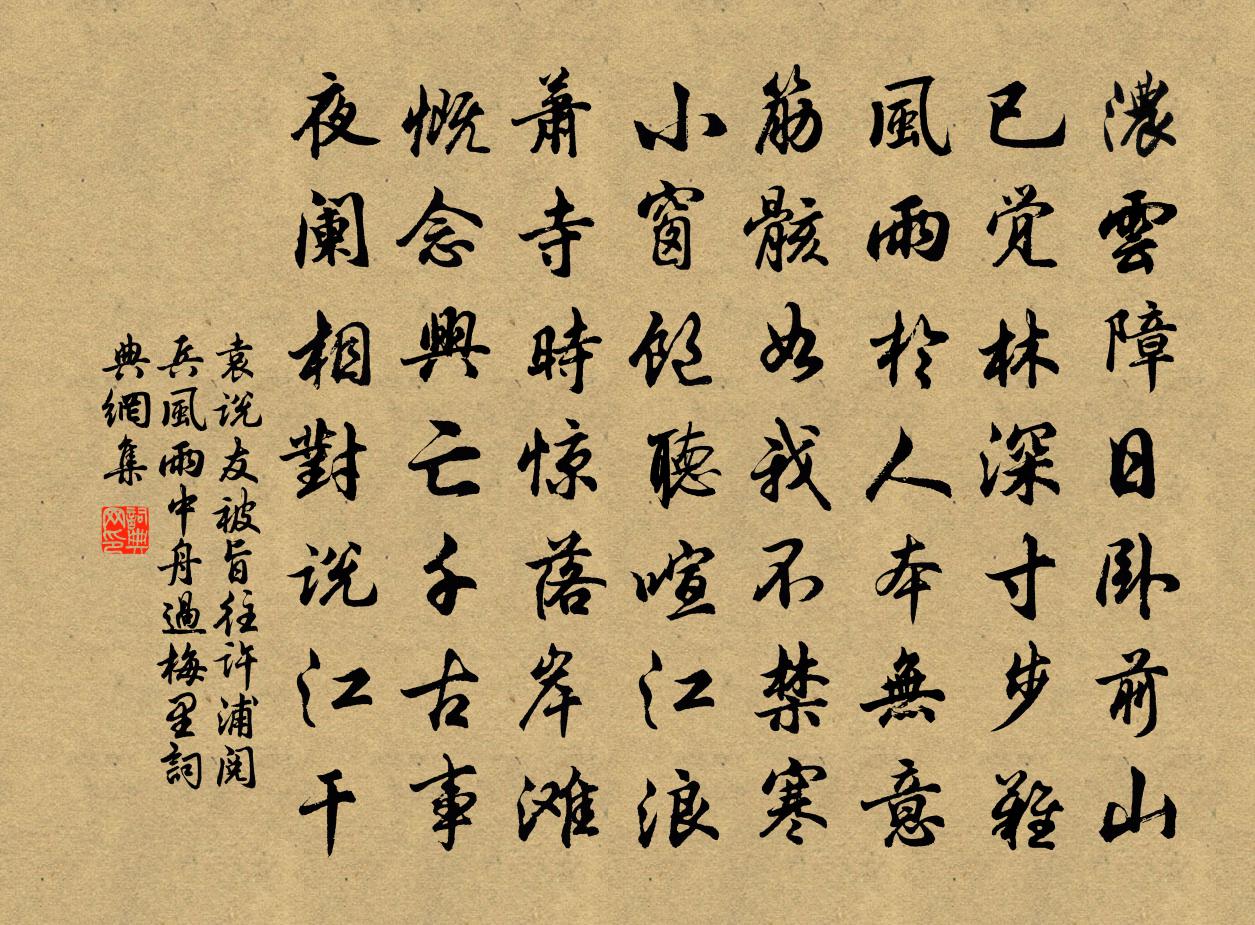 濃雲障日卧前山
已觉林深寸步難
風雨於人本無意
筋骸如我不禁寒
小窗飽聽喧江浪
萧寺時惊落岸滩
慨念興亡千古事
夜阑相對说江干
袁说友被旨往许浦阅
兵風雨中舟過梅里詞
典網集
詞典网印